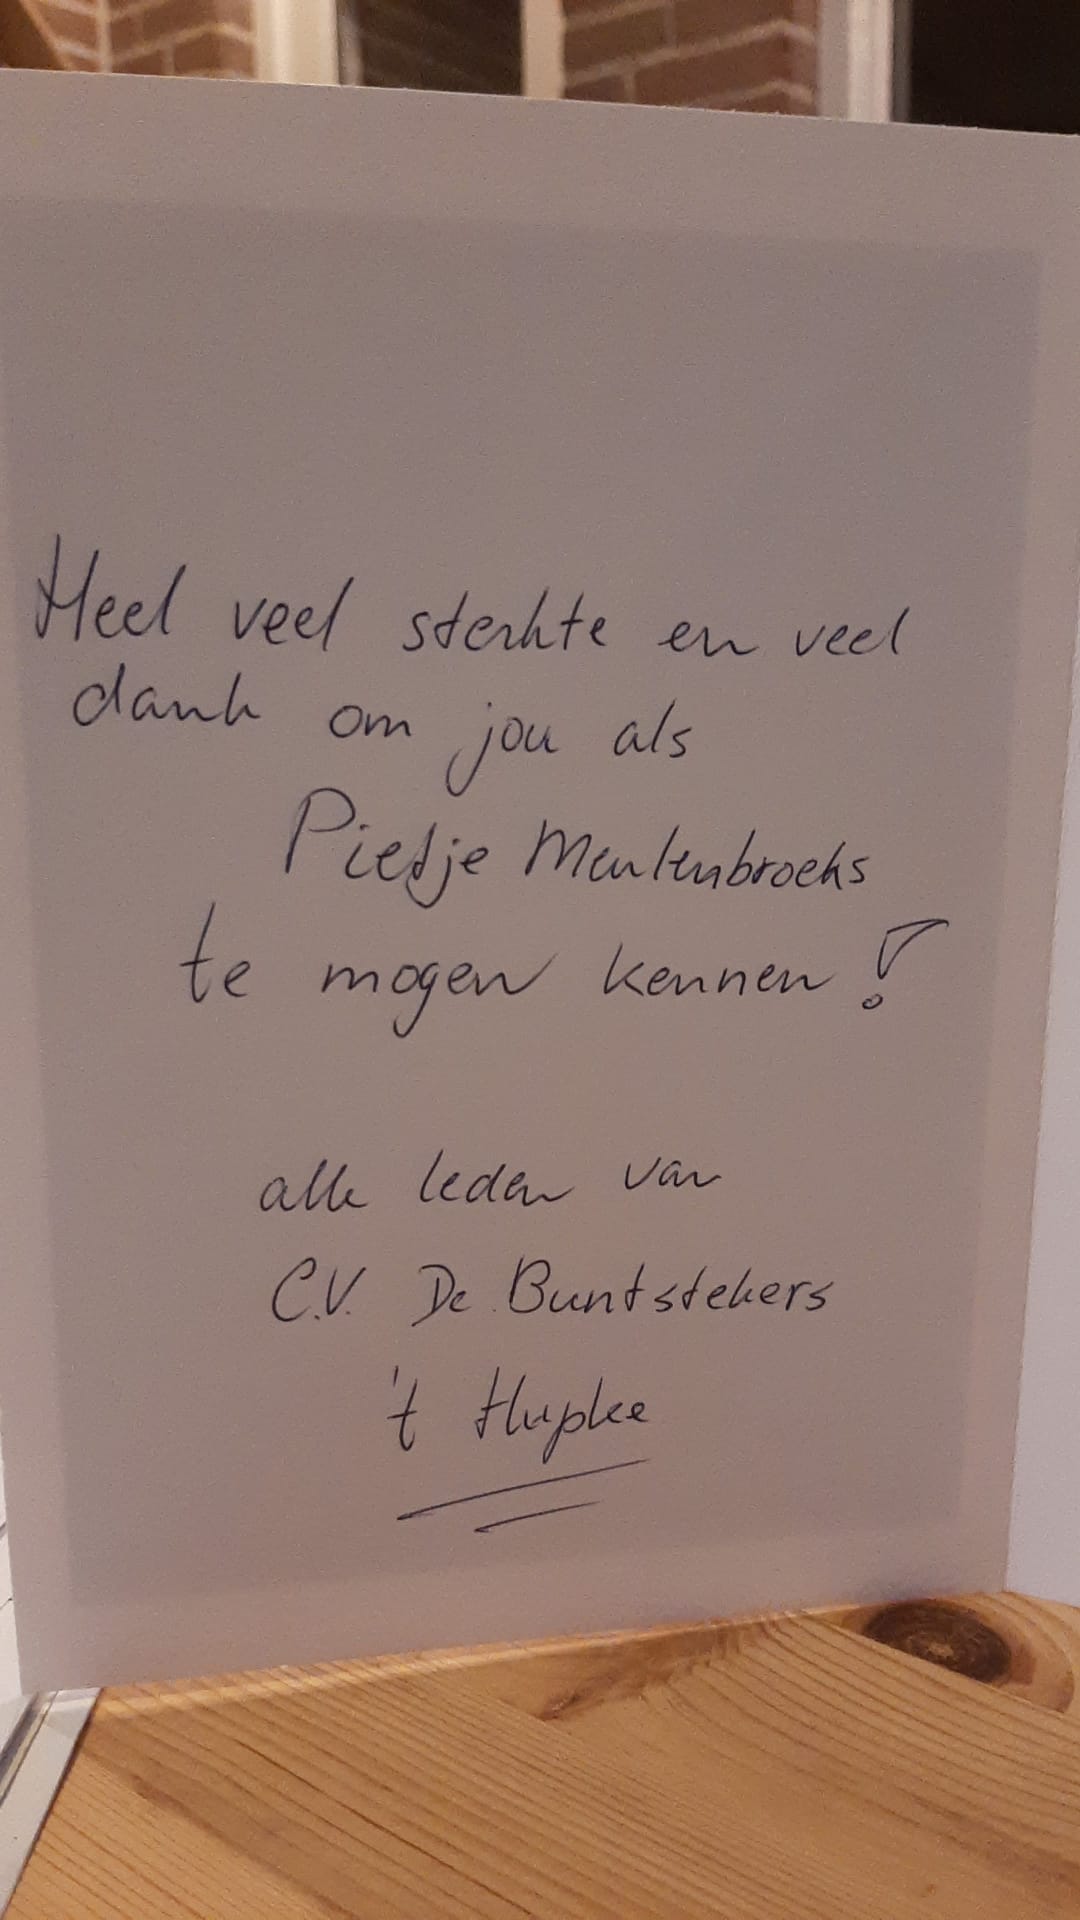 Heel veel sterkte en veel
dank om jou als
Pietje Meulenbroeks
te mogen kennen!
alle leden van
C.V. De Buntstekers
't Hupke